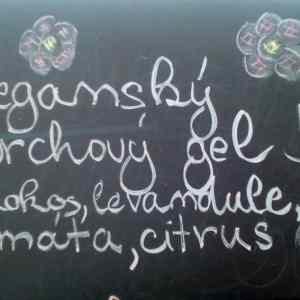 veganský
sprchový gel
kokos, levandule,
máta, citrus